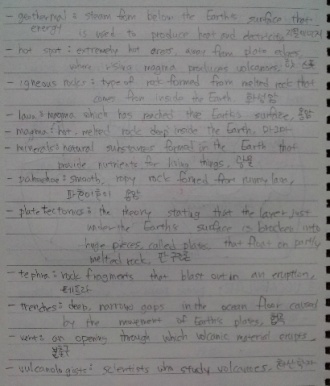 - geothermal : steam from below the Earth's surface that
energy is used to produce heat and electricity. 지열에너지
- hot spot : extremely hot areas, away from plate edges,
where rising magma produces volcanoes,
- igneous rocks : type of rock formed from melted rock that
comes from inside the Earth 화성암
- lava : magma which has reached the Earth's surface, 용암
- magma : hot, melted rock deep inside the Earth, 마그마
- minerals : natural substances formed in the Earth that
provide nutrients for living things, 광물
- pahoehoe : smooth, ropy rock formed from runny lava,
용암
- plate tectonics : the theory stating that the layer just
under the Earth's surface is broken into
huge pieces, called plates that float on partly
melted rock, 판구조론
- tephra : rock fragments that blast out in an eruption,
테프라
- trenches : deep, narrow gaps in the ocean floor caused
by the movement of Earth's plates, 해구
- vents : an opening through which volcanic material erupts,
분출구
- vulcanologists : scientists who study volcanoes, 화산학자